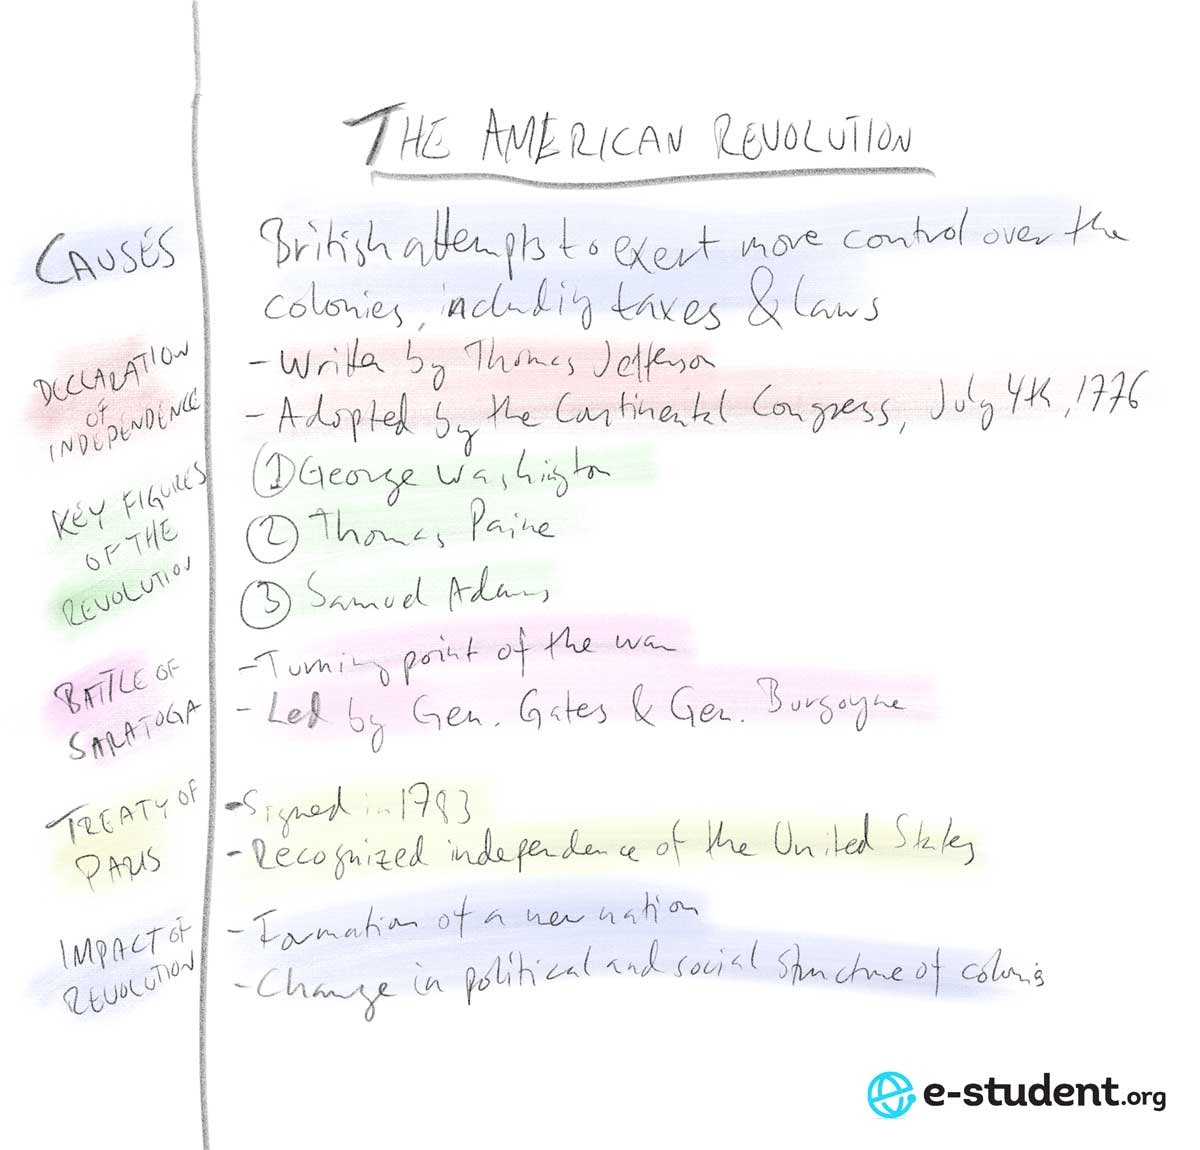 THE AMERICAN REVOLUTION
CAUSES
British attempts to exert more control over the
colonies, including taxes & laws
DECLARATION
OF
INDEPENDENCE
- Written by Thomas Jefferson
- Adopted by the Continental Congress, July 4th, 1776
KEY FIGURES
OF THE
REVOLUTION
① George Washington
② Thomas Paine
③ Samuel Adams
BATTLE OF
SARATOGA
- Turning point of the war
- Led by Gen. Gates & Gen. Burgoyne
TREATY OF
PARIS
- Signed in 1783
- Recognized independence of the United States
IMPACT OF
REVOLUTION
- Formation of a new nation
- Change in political and social structure of colonis
e-student.org